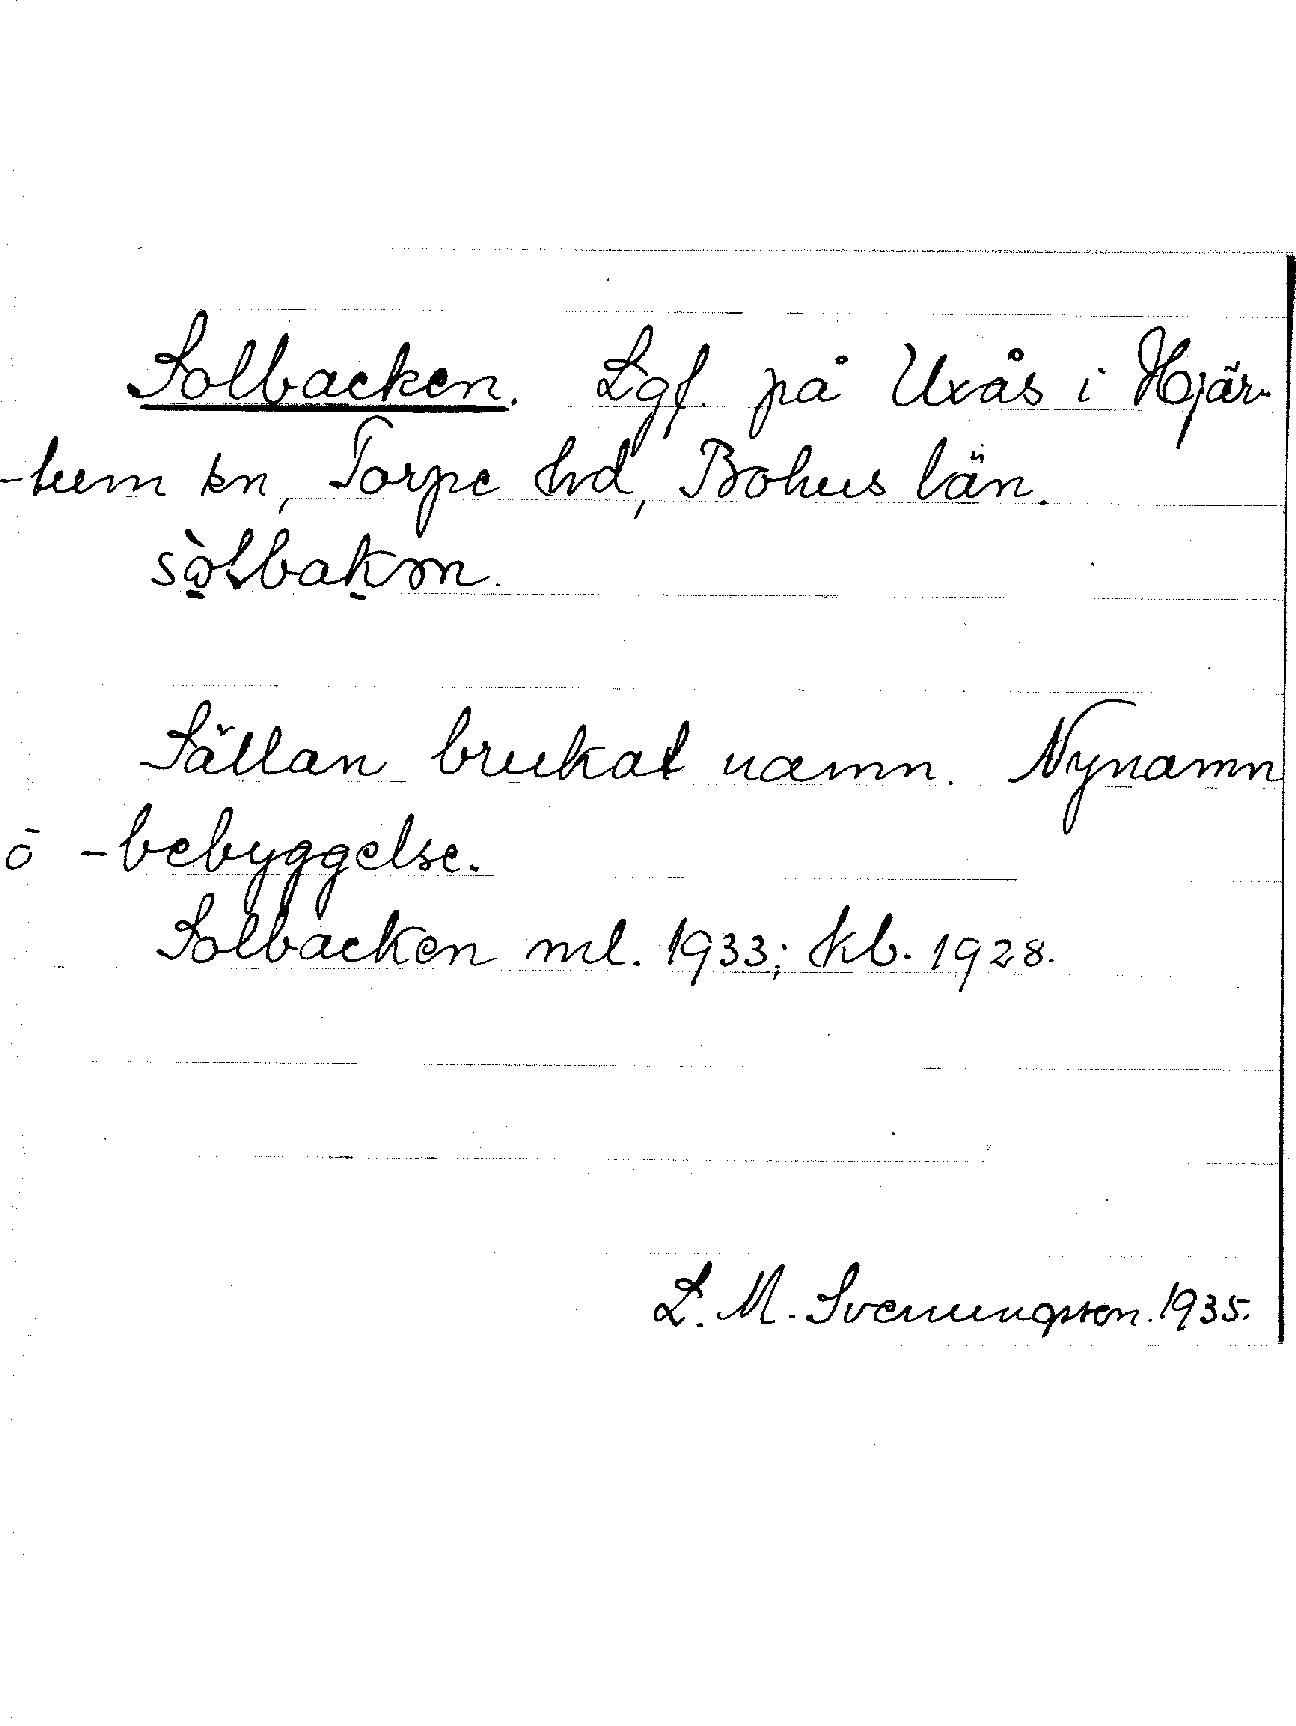 Solbacken. Lgf. på Uxås i Hjär-
-tum sn, Torpe hd, Bohus län.
Sällan brukat namn. Nynamn
o -bebyggelse.
Solbacken ml. 1933; kb. 1928.
L. M. Svenungsson. 1935.